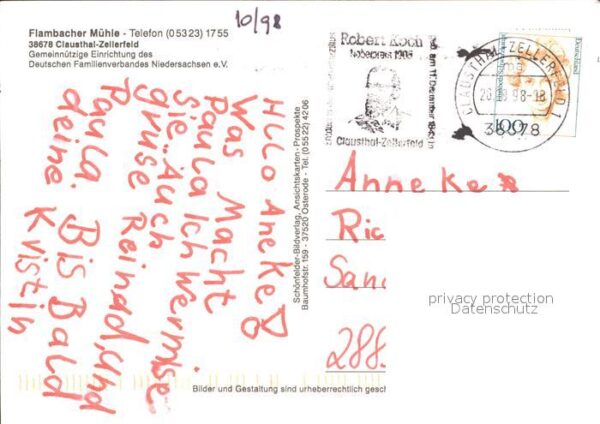 10/98
Flambacher Mühle - Telefon (0 53 23) 17 55
38678 Clausthal-Zellerfeld
Gemeinnützige Einrichtung des
Deutschen Familienverbandes Niedersachsen e.V.
Hllo Aneke!
Was Macht
Paula Ich Wermise
Sie. Auch
gruse Reinad, und
Paula. Bis Bald
deine Kvistin
Schönfelder-Bildverlag, Ansichtskarten - Prospekte
Baumhofstr. 159 - 37520 Osterode - Tel. (0 55 22) 42 06
Robert Koch
Nobelpreis 1905
Clausthal-Zellerfeld
CLAUSTHAL-ZELLERFELD 1
98-18
38678
Deutschland
100
Anneke
Ric
San
288
privacy protection
Datenschutz
Bilder und Gestaltung sind urheberrechtlich gesc